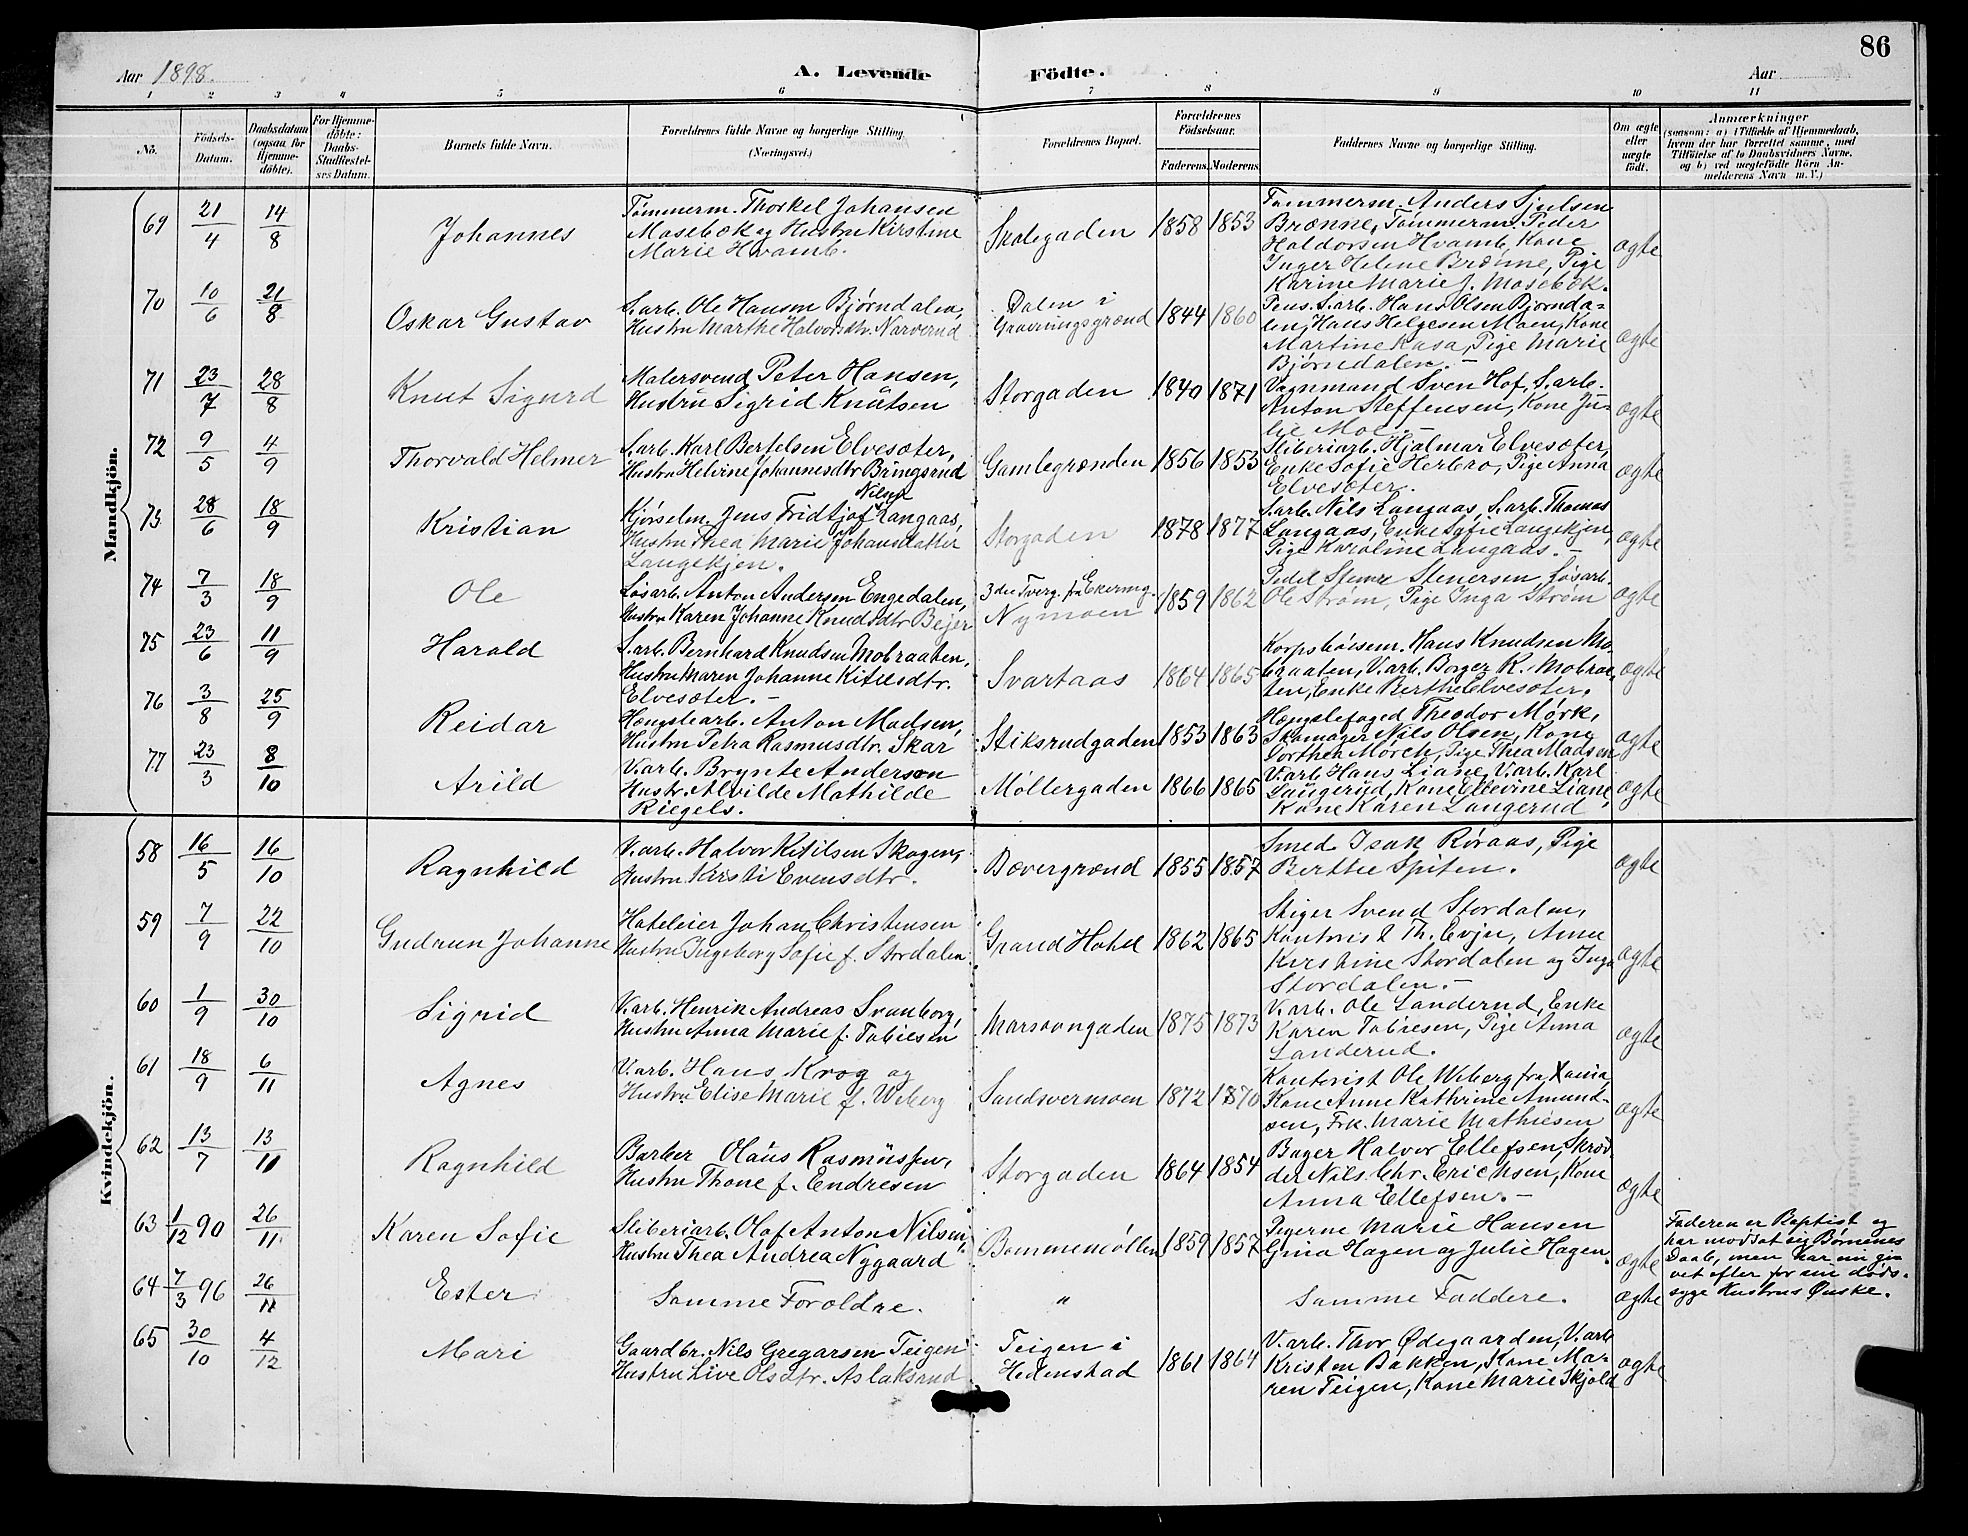 86
Aar 1898. A. Levende Födte. Aar
1 2 3 4 5 6 7 8 9 10 11
No.
Födsels-
Datum.
Daabsdatum
(ogsaa for
Hjemme-
döbte).
For Hjemme-
döbte:
Daabs-
Stadfæstel-
ses Datum.
Barnets fulde Navn.
Forældrenes fulde Navne og borgerlige Stilling.
(Næringsvei.)
Forældrenes Bopæl.
Forældrenes
Födselsaar.
Faderens. Moderens.
Faddernes Navne og borgerlige Stilling.
Om ægte
eller
uægte
født.
Anmærkninger
(saasom: a) i Tilfælde af Hjemmedaab,
hvem der har forrettet samme, med
Tilføielse af to Daabsvidners Navne.
og b) ved uægtefødte Börn An-
melderens Navn m. V.)
Mandkjön.
69 21/4 14/8 Johannes
Tømmerm. Thorkel Johansen
Mosebæk og Hustru Kirstine
Marie Hvamb.
Skolegaden 1858 1853
Tømmerm. Anders Sjulsen
Brænne, Tømmerm. Peder
Haldorsen Hvamb, Kone
Inger Helene Brænne, Pige
Karine Marie J. Mosebæk.
ægte
70 10/6 21/8 Oskar Gustav
S.arb. Ole Hansen Bjørndalen,
Hustru Marthe Halvorsdtr. Narverud
Dalen i
Gravningsgrænd 1844 1860
Pens. S.arb. Hans Olsen Bjørnda-
len, Hans Helgesen Moen, Kone
Martine Kasa, Pige Marie
Bjørndalen.-
ægte
71 23/7 28/8 Knut Sigurd
Malersvend Peter Hansen,
Hustru Sigrid Knutsen
Storgaden 1840 1871
Vognmand Sven Hof, S.arb.
Anton Steffensen, Kone Ju-
lie Moe.-
ægte
72 9/5 4/9 Thorvald Helmer
S.arb. Karl Bertelsen Elvesæter,
Hustru Helvine Johannesdtr Bringsrud
Gamlegrænden 1856 1853
Sliberiarb. Hjalmar Elvesæter,
Enke Sofie Herbro, Pige Anna
Elvesæter.
ægte
73 28/6 18/9 Kristian
Nilsen
Kjørselm. Jens Fridtjof Langaas,
Hustru Thea Marie Johansdatter
Langekjen.
Storgaden 1878 1877
S.arb. Nils Langaas, S.arb. Thomas
Langaas, Enke Sofie Langekjen,
Pige Karoline Langaas.-
ægte
74 7/3 18/9 Ole
Løsarb. Anton Andersen Engedalen,
Hustru Karen Johanne Knudsdtr Bejer
3die Tverg. fra Ekerning.
Nymoen 1859 1862
Pedel Stenersen, Løsarb.
Ole Strøm, Pige Inga Strøm
ægte
75 23/6 11/9 Harald
S.arb. Bernhard Knudsen Mobraaten,
Hustru Maren Johanne Kittilsdtr.
Elvesæter.-
Svartaas 1864 1865
Hans Knudsen Mo-
braaten, V.arb. Borger K. Mobraa-
ten, Enke Berthe Elvesæter.
ægte
76 3/8 25/9 Reidar
Hængslearb. Anton Madsen,
Hustru Petra Rasmusdtr. Skar
Stiksrudgaden 1853 1863
Hængslefoged Theodor Mørk,
Skomager Nils Olsen, Kone
Dorthea Mørch, Pige Thea Madsen
ægte
77 23/3 8/10 Arild
V.arb. Brynte Anderson
Hustr. Alvilde Mathilde
Riegels.
Møllergaden 1866 1865
V.arb. Hans Liane, V.arb. Karl
Saugerud, Kone Ellevine Liane,
Kone Karen Langerud
ægte
Kvindekjön.
58 16/5 16/10 Ragnhild
V.arb. Halvor Kittilsen Skogen,
Hustru Kirsti Evensdtr.
Bævergrænd 1855 1857
Smed Isak Røraas, Pige
Berthe Spiten.
ægte
59 7/9 22/10 Gudrun Johanne
Hoteleier Johan Christensen
Hustru Ingeborg Sofie f. Stordalen
Grand Hotel 1862 1865
Stiger Svend Stordalen,
Kontorist Th. Evju, Anne
Kirstine Stordalen og Inga
Stordalen.-
ægte
60 1/9 30/10 Sigrid
V.arb. Henrik Andreas Svanborg,
Hustru Anna Marie f. Tobiesen
Marsovngaden 1875 1873
V.arb. Ole Landerud, Enke
Karen Tobiesen, Pige Anna
Landerud.
ægte
61 18/9 6/11 Agnes
V.arb. Hans Krog og
Hustru Elise Marie f. Wiberg
Sandsvermoen 1872 1870
Kontorist Ole Wiberg fra Xania,
Kone Anne Kathrine Amund-
sen, Frk. Marie Mathiesen
ægte
62 13/7 13/11 Ragnhild
Barber Olaus Rasmussen,
Hustru Thone f. Endresen
Storgaden 1864 1854
Bager Halvor Ellefsen, Skræd-
der Nils Chr. Erichsen, Kone
Anna Ellefsen.-
ægte
63 1/12 90 26/11 Karen Sofie
Sliberiarb. Olaf Anton Nilsen,
Hustru Thea Andrea Nygaard
Bommemøllen 1859 1857
Pigerne Marie Hansen
Gina Hagen og Julie Hagen.
ægte
Faderen er Baptist og
har modsat sig Børnenes
Daab, men har nu gi-
vet efter for sin døds-
syge Hustrus Ønske.
64 7/3 96 26/11 Ester
Samme Foroldre.
"
Samme Faddere.
ægte
65 30/10 4/12 Mari
Gaardbr. Nils Gregarsen Teigen
Hustru Live Olsdtr. Aslaksrud
Teigen i
Hedenstad 1861 1864
V.arb. Thor Ødegaarden, V.arb.
Kristen Bakken, Kone Ma-
ren Teigen, Kone Marie Skjold
ægte